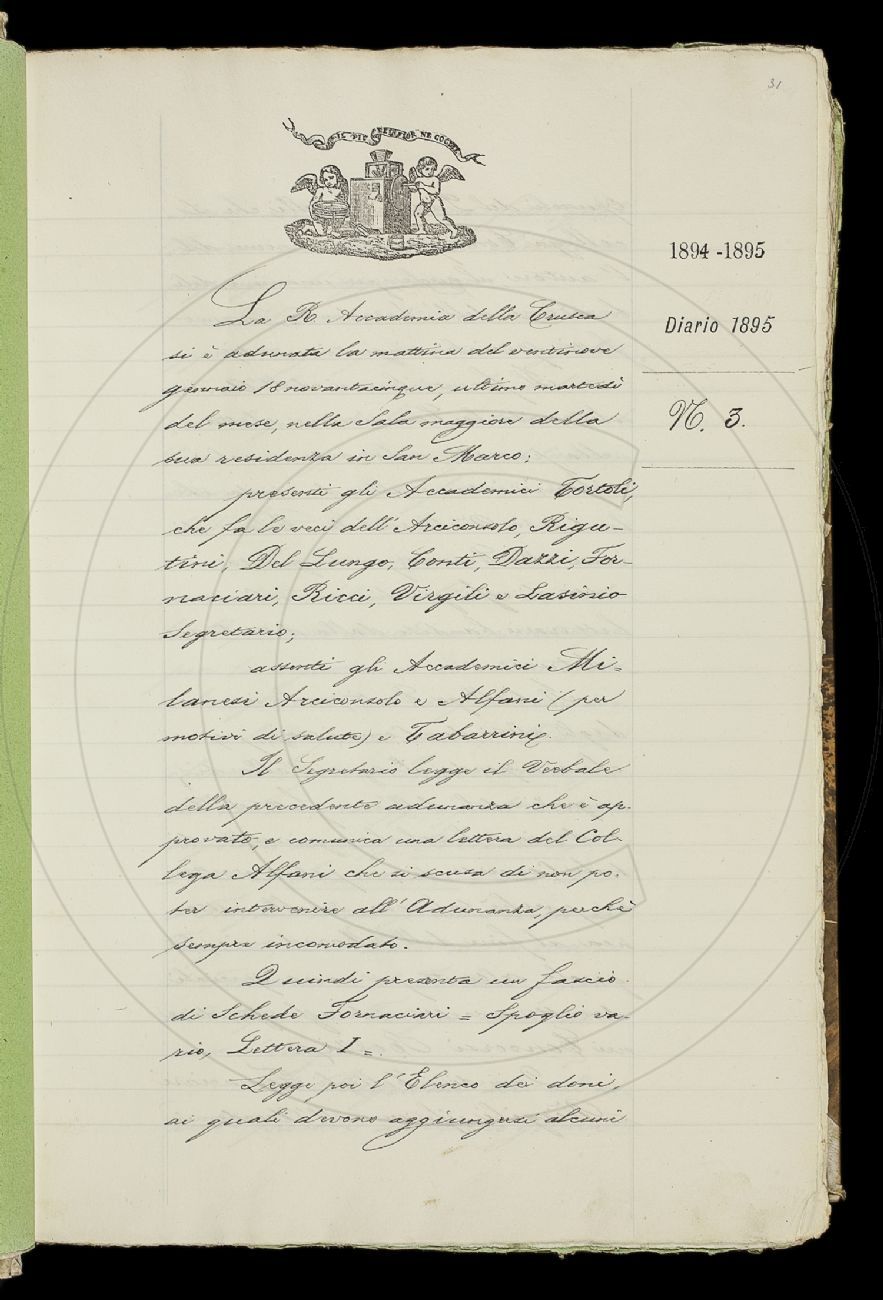 31
IL PIÙ BEL FIOR NE COGLIE
1894 -1895
Diario 1895
N. 3.
La R. Accademia della Crusca
si è adunata la mattina del ventinove
gennaio 18novantacinque, ultimo martedì
del mese, nella Sala maggiore della
sua residenza in San Marco;
presenti gli Accademici Tortoli,
che fa le veci dell'Arciconsolo, Rigu-
tini, Del Lungo, Conti, Dazzi, For-
naciari, Ricci, Virgili e Lasinio
Segretario;
assenti gli Accademici Mi-
lanesi Arciconsolo e Alfani (per
motivi di salute) e Tabarrini.
Il Segretario legge il Verbale
della precedente adunanza che è ap-
provato, e comunica una lettera del Col-
lega Alfani che si scusa di non po-
ter intervenire all'Adunanza, perchè
sempre incomodato.
Quindi presenta un fascio
di Schede Fornaciari = Spoglio va-
rio, Lettera I =.
Legge poi l'Elenco dei doni,
ai quali devono aggiungersi alcuni